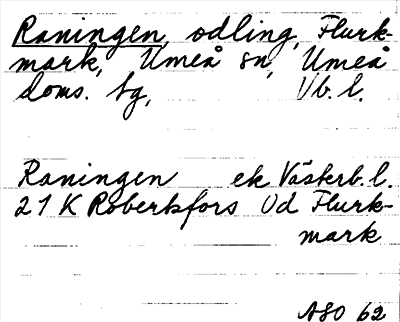 Raningen, odling, Flurk-
mark, Umeå sn, Umeå
doms. tg, Vb. l.
Raningen ek Västerb. l.
21 K Robertsfors Od Flurk-
mark
ASO 62